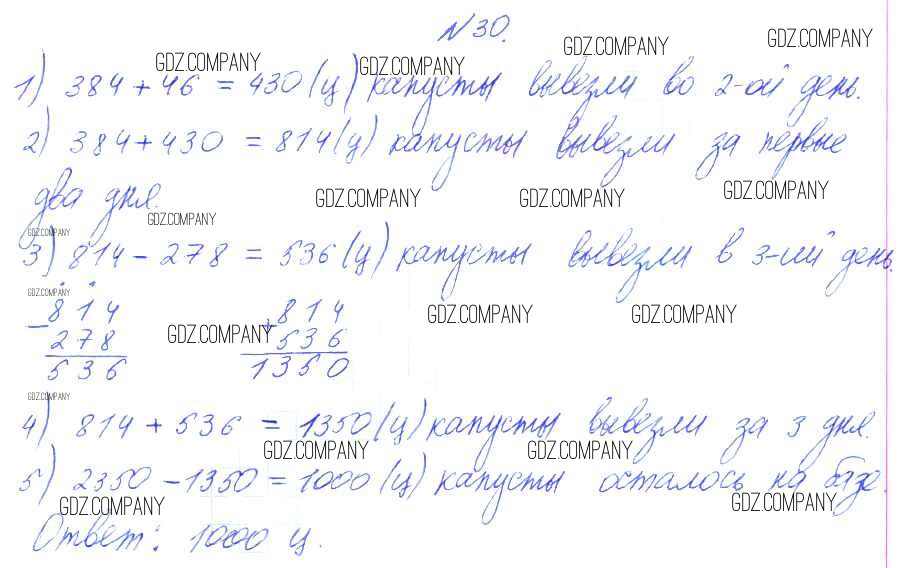 №30.
GDZ.COMPANY GDZ.COMPANY GDZ.COMPANY GDZ.COMPANY
1) 384 + 46 = 430 (ц) капусты вывезли во 2-ой день.
2) 384 + 430 = 814 (ц) капусты вывезли за первые
два дня.
GDZ.COMPANY GDZ.COMPANY GDZ.COMPANY GDZ.COMPANY
GDZ.COMPANY
3) 814 - 278 = 536 (ц) капусты вывезли в 3-ий день.
GDZ.COMPANY
- 814 + 814
GDZ.COMPANY GDZ.COMPANY GDZ.COMPANY
278 536
536 1350
GDZ.COMPANY
4) 814 + 536 = 1350 (ц) капусты вывезли за 3 дня.
GDZ.COMPANY GDZ.COMPANY
5) 2350 - 1350 = 1000 (ц) капусты осталось на базе.
GDZ.COMPANY GDZ.COMPANY
Ответ: 1000 ц.